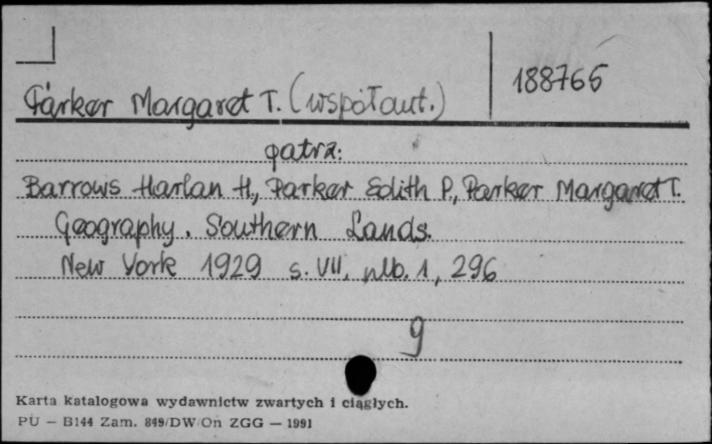 188766
Parker Margaret T. (współaut.)
patrz:
Barrows Harlan H., Parker Edith P., Parker Margaret T.
Geography. Southern Lands.
New York 1929 s. VII, nlb. 1, 296
g
Karta katalogowa wydawnictw zwartych i ciągłych.
PU — B144 Zam. 849/DW/On ZGG — 1991